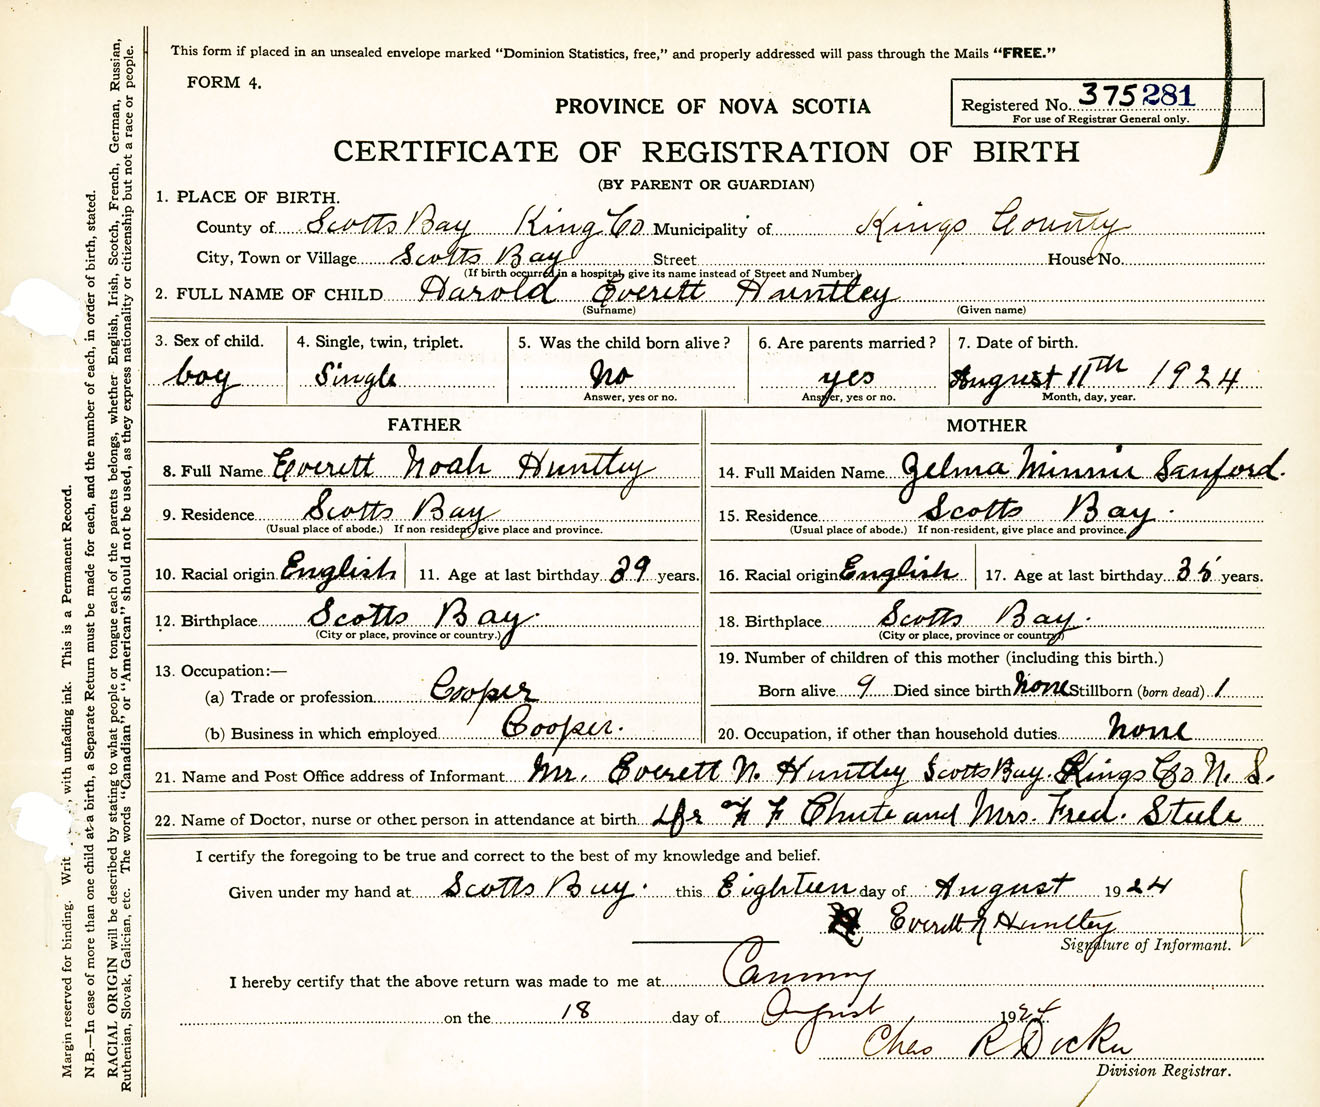 This form if placed in an unsealed envelope marked “Dominion Statistics, free,” and properly addressed will pass through the Mails “FREE.”
FORM 4.
PROVINCE OF NOVA SCOTIA
Registered No. 375281
For use of Registrar General only.
CERTIFICATE OF REGISTRATION OF BIRTH
(BY PARENT OR GUARDIAN)
1. PLACE OF BIRTH.
County of Scotts Bay King Co Municipality of Kings County
City, Town or Village Scotts Bay Street House No.
(If birth occurred in a hospital, give its name instead of Street and Number)
2. FULL NAME OF CHILD Harold Everett Huntley
(Surname) (Given name)
3. Sex of child. 4. Single, twin, triplet. 5. Was the child born alive? 6. Are parents married? 7. Date of birth.
boy Single No yes August 11th 1924
Answer, yes or no. Answer, yes or no. Month, day, year.
FATHER MOTHER
8. Full Name Everett Noah Huntley 14. Full Maiden Name Zelma Minnie Sanford.
9. Residence Scotts Bay 15. Residence Scotts Bay.
(Usual place of abode.) If non resident, give place and province. (Usual place of abode.) If non-resident, give place and province.
10. Racial origin English 11. Age at last birthday 39 years. 16. Racial origin English 17. Age at last birthday 35 years.
12. Birthplace Scotts Bay. 18. Birthplace Scotts Bay.
(City or place, province or country.) (City or place, province or country)
13. Occupation:— 19. Number of children of this mother (including this birth.)
(a) Trade or profession Cooper Born alive 9 Died since birth None Stillborn (born dead) 1
(b) Business in which employed Cooper. 20. Occupation, if other than household duties None
21. Name and Post Office address of Informant Mr. Everett N. Huntley Scotts Bay. Kings Co N. S.
22. Name of Doctor, nurse or other person in attendance at birth Dr F F Chute and Mrs. Fred. Steele
I certify the foregoing to be true and correct to the best of my knowledge and belief.
Given under my hand at Scotts Bay. this Eighteen day of August 1924
Everett N Huntley
Signature of Informant.
I hereby certify that the above return was made to me at Canning
on the 18 day of August 1924
Chas R
Division Registrar.
Margin reserved for binding. Writ with unfading ink. This is a Permanent Record.
N.B.—In case of more than one child at a birth, a Separate Return must be made for each, and the number of each, in order of birth, stated.
RACIAL ORIGIN will be described by stating to what people or tongue each of the parents belongs, whether English, Irish, Scotch, French, German, Russian,
Ruthenian, Slovak, Galician, etc. The words “Canadian” or “American” should not be used, as they express nationality or citizenship but not a race or people.